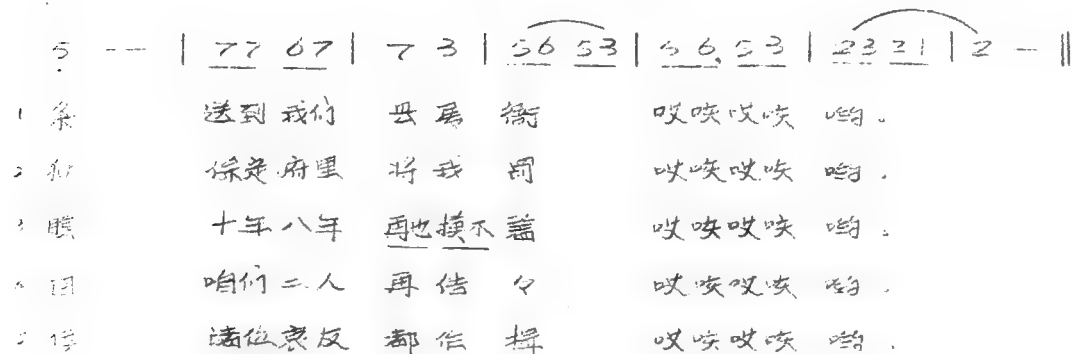 5 - - | 77 67 | 7 3 | 56 53 | 56. 53 | 23 21 | 2 - ‖
1 条 送到我们县属衙 哎咳哎咳哟。
2 保定府里将我罚 哎咳哎咳哟.
3 十年八年再也摸不 哎咳哎咳哟。
咱们二人再 々 哎咳哎咳哟.
诸位 都作揖 哎咳哎咳哟.